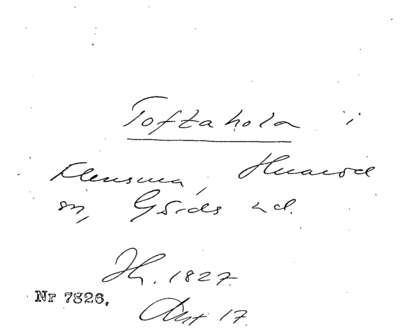 Toftahola i
Elensma, Huaröd
sn, Gärds hd.
Jh. 1827.
Nr 7826.
Akt 17.